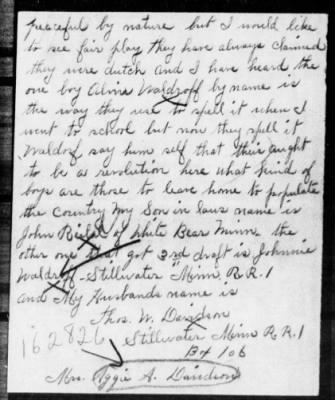 peaceful by nature but I would like
to see fair play they have always claimed
they were dutch and I have heard the
one boy Alvin Waldroff by name is
the way they use to spell it when I
went to school but now they spell it
Waldorf say him self that their aught
to be a revolution here what kind of
boys are those to leave home to populate
the Country My Son in laws name is
John of White Bear Minn. the
other one that got 3rd draft is Johnnie
Waldroff - Stillwater Minn R.R.1
and My Husbands name is
Thos. W. Davidson
162826 Stillwater Minn R.R.1
Bx 106
Mrs. Aggie A. Davidson